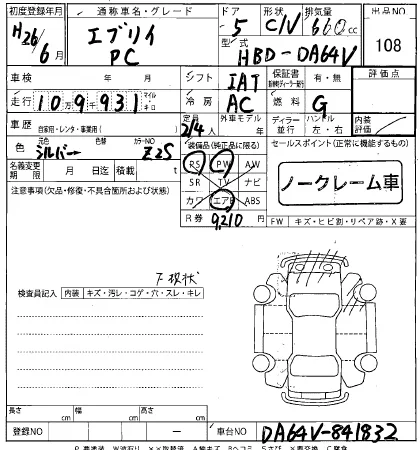 初度登録年月 通称車名・グレード ドア 形状 排気量 出品NO
H26/6月 エブリイ PC 5 C/V 660cc 108
型式 HBD-DA64V
車検 年 月 シフト IAT 保証書 有・無 評価点
走行 10万9千931 マイル・キロ 冷房 AC 燃料 G
車歴 自家用・レンタ・事業用( ) 定員 2/4人 外車モデル 年 ディーラー 並行 ハンドル 左・右 内装評価
色 元色 シルバー 色替 カラーNO Z2S 装備品(純正品に限る) セールスポイント(正常に機能するもの)
名義変更期限 月 日迄 積載 t RS PW AW ノークレーム車
注意事項(欠品・修復・不具合箇所および状態) SR TV ナビ
カワ エアB ABS
R券 9210円 FW キズ・ヒビ割・リペア跡・X要
下現状
検査員記入 内装 キズ・汚レ・コゲ・穴・スレ・キレ
長さ cm 幅 cm 高さ cm
登録NO — 車台NO DA64V-841832